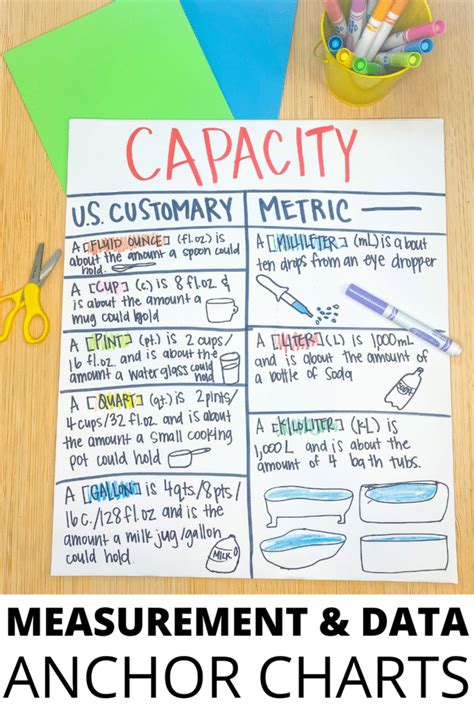 CAPACITY
U.S. CUSTOMARY
A [FLUID OUNCE] (fl.oz.) is
about the amount a spoon could
hold.
A [CUP] (c.) is 8 fl.oz &
is about the amount a
mug could hold
A [PINT] (pt.) is 2 cups/
16 fl.oz. and is about the
amount a water glass could hold
A [QUART] (qt.) is 2 pints/
4 cups/32 fl.oz and is about
the amount a small cooking
pot could hold
A [GALLON] is 4qts/8pts/
16c./128 fl.oz and is the
amount a milk jug/gallon
could hold.
MILK
METRIC
A [MILLILITER] (mL) is about
ten drops from an eye dropper
A [LITER] (L) is 1,000mL
and is about the amount of
a bottle of Soda
SODA
A [KILOLITER] (kL) is
1,000 L and is about the
amount of 4 bath tubs.
MEASUREMENT & DATA
ANCHOR CHARTS